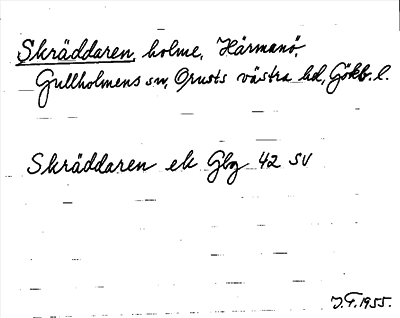 Skräddaren, holme, Härmanö,
Gullholmens sn, Orusts västra hd, Gökb. l.
Skräddaren ek Gbg 42 SV
J.F. 1955.